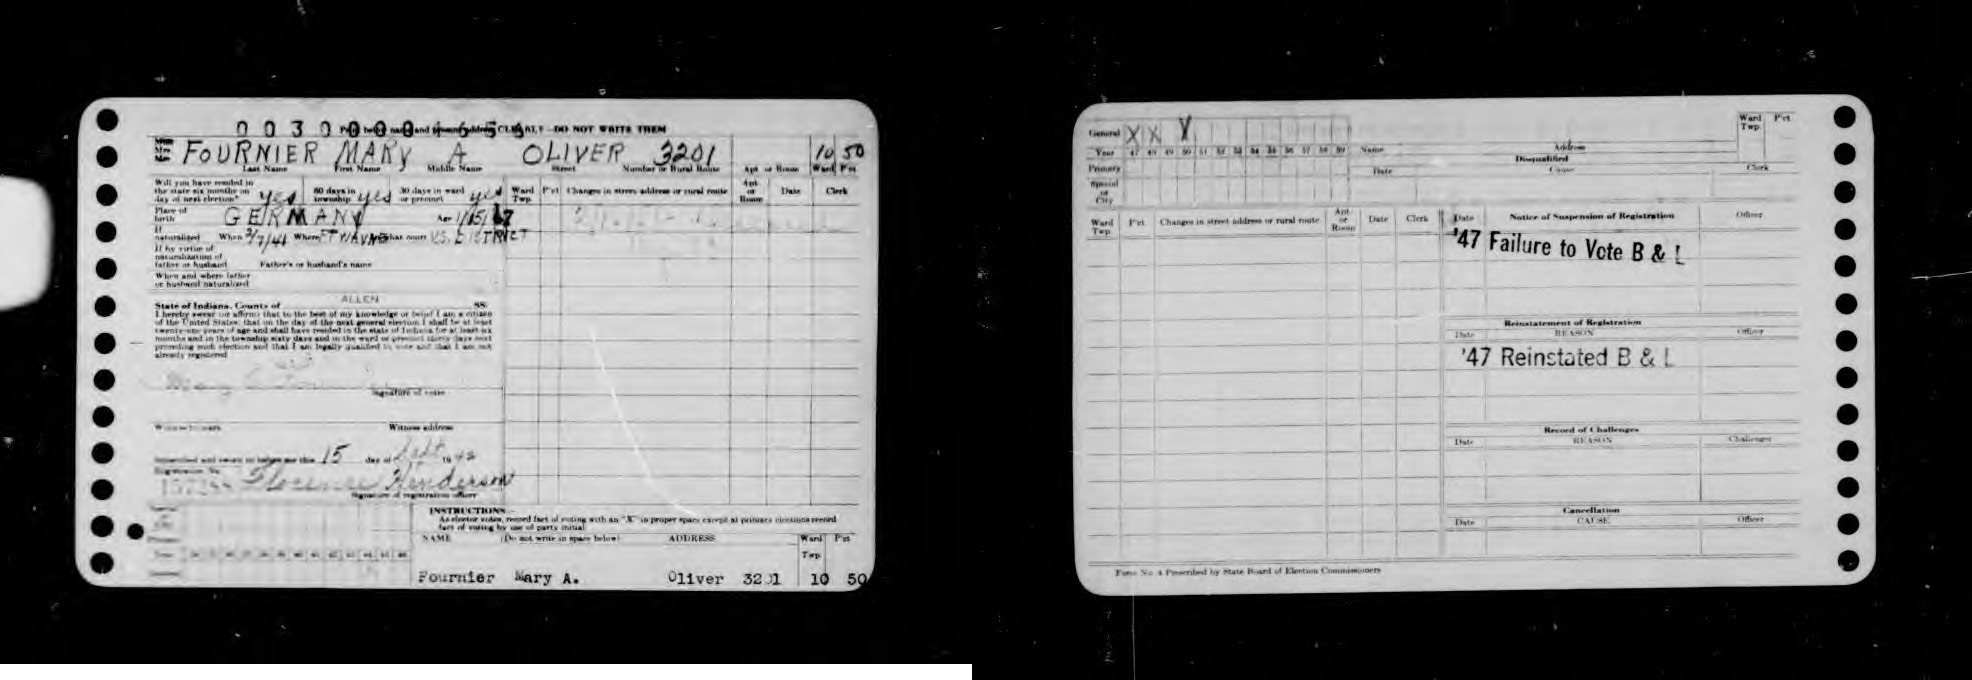 CLEARLY—DO NOT WRITE THEM
FOURNIER MARY A OLIVER 3201 10 50
Last Name First Name Middle Name Street Number or Rural Route Apt or Room Ward P'ct
Will you have resided in
the state six months on
day of next election? yes 60 days in township yes 30 days in ward or precinct yes
Ward Twp. P'ct Changes in street address or rural route Apt or Room Date Clerk
Place of birth GERMANY Age
If naturalized When 2/7/41 Where FT WAYNE what court U.S. DISTRICT
If by virtue of
naturalization of
father or husband Father's or husband's name
When and where father
or husband naturalized
State of Indiana, County of ALLEN SS:
I hereby swear (or affirm) that to the best of my knowledge or belief I am a citizen
of the United States; that on the day of the next general election I shall be at least
twenty-one years of age and shall have resided in the state of Indiana for at least six
months and in the township sixty days and in the ward or precinct thirty days next
preceding such election and that I am legally qualified to vote and that I am not
already registered
Mary
Signature of voter
Witness address
Subscribed and sworn to before me this 15 day of Sept 19 42
Registration No.
Florence Henderson
Signature of registration officer
INSTRUCTIONS
As elector votes, record fact of voting with an "X" in proper space except at primary elections record
fact of voting by use of party initial
NAME (Do not write in space below) ADDRESS Ward Twp. P'ct
Fournier Mary A. Oliver 3201 10 50
General X X
Ward Twp. P'ct
Year 47 48 49 50 51 52 53 54 55 56 57 58 59 Name Address
Disqualified
Primary Date Cause Clerk
Special
or
City
Ward Twp. P'ct Changes in street address or rural route Apt or Room Date Clerk
Date Notice of Suspension of Registration Officer
'47 Failure to Vote B & L
Reinstatement of Registration
Date REASON Officer
'47 Reinstated B & L
Record of Challenges
Date REASON Challenger
Cancellation
Date CAUSE Officer
Form No. 4 Prescribed by State Board of Election Commissioners